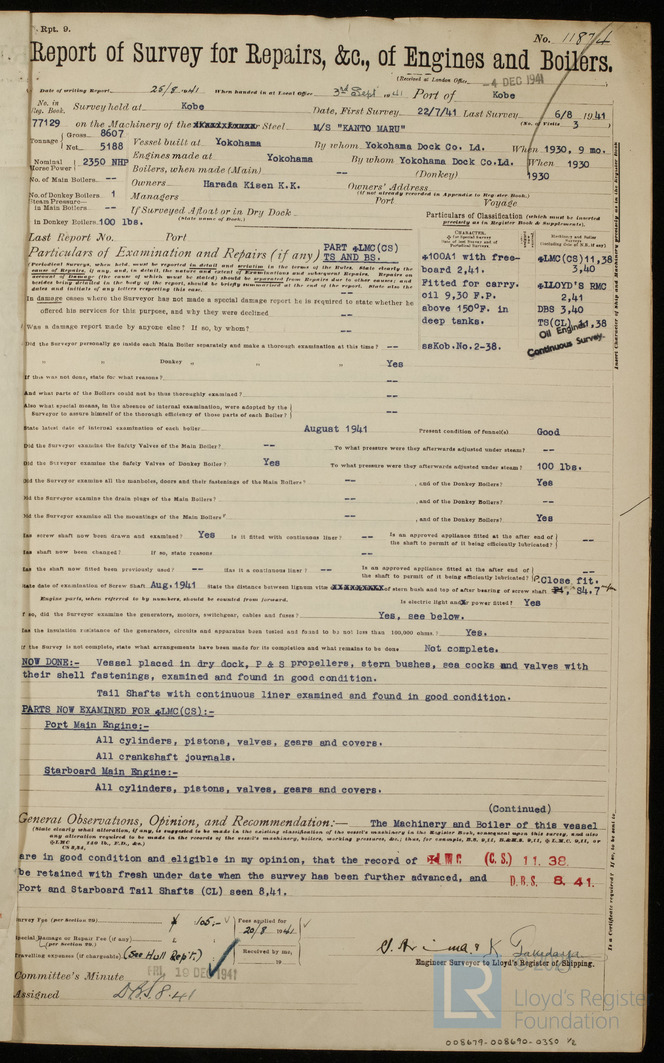 Rpt. 9.
No. 11874
Report of Survey for Repairs, &c., of Engines and Boilers.
(Received at London Office 4 DEC 1941)
Date of writing Report 25/8 1941 When handed in at Local Office 3rd Sept 1941 Port of Kobe
No. in Reg. Book. Survey held at Kobe Date, First Survey 22/7/41 Last Survey 6/8 1941
(No. of Visits 3)
77129 on the Machinery of the Steel M/S "KANTO MARU"
Tonnage { Gross 8607 Net 5188
Vessel built at Yokohama By whom Yokohama Dock Co. Ld. When 1930, 9 mo.
Nominal Horse Power 2350 NHP
Engines made at Yokohama By whom Yokohama Dock Co.Ld. When 1930
No. of Main Boilers -- Boilers, when made (Main) -- (Donkey) 1930
No. of Donkey Boilers 1 Owners Harada Kisen K.K. Owners' Address
(if not already recorded in Appendix to Register Book.)
Steam Pressure— in Main Boilers -- Managers Port Voyage
in Donkey Boilers 100 lbs. If Surveyed Afloat or in Dry Dock
(State name of Dock.)
Particulars of Classification (which must be inserted precisely as in Register Book & Supplements).
Last Report No. Port
Particulars of Examination and Repairs (if any) PART ✠LMC(CS) TS AND BS.
✠100A1 with free-
board 2,41.
Fitted for carry.
oil 9,30 F.P.
above 150°F. in
deep tanks.
ssKob.No.2-38.
✠LMC(CS)11,38
3,40
✠LLOYD'S RMC
2,41
DBS 3,40
TS(CL) 11,38
Oil Engines
Continuous Survey.
In damage cases where the Surveyor has not made a special damage report he is required to state whether he
offered his services for this purpose, and why they were declined --
Was a damage report made by anyone else? If so, by whom? --
Did the Surveyor personally go inside each Main Boiler separately and make a thorough examination at this time? --
" " Donkey " " " Yes
If this was not done, state for what reasons? --
And what parts of the Boilers could not be thus thoroughly examined? --
Also what special means, in the absence of internal examination, were adopted by the
Surveyor to assure himself of the thorough efficiency of those parts of each Boiler? --
State latest date of internal examination of each boiler August 1941 Present condition of funnel(s) Good
Did the Surveyor examine the Safety Valves of the Main Boiler? -- To what pressure were they afterwards adjusted under steam? --
Did the Surveyor examine the Safety Valves of Donkey Boiler? Yes To what pressure were they afterwards adjusted under steam? 100 lbs.
Did the Surveyor examine all the manholes, doors and their fastenings of the Main Boilers? -- , and of the Donkey Boilers? Yes
Did the Surveyor examine the drain plugs of the Main Boilers? -- , and of the Donkey Boilers? --
Did the Surveyor examine all the mountings of the Main Boilers? -- , and of the Donkey Boilers? Yes
Has screw shaft now been drawn and examined? Yes Is it fitted with continuous liner? -- Is an approved appliance fitted at the after end of the shaft to permit of it being efficiently lubricated? --
Has shaft now been changed? If so, state reasons --
Has the shaft now fitted been previously used? -- Has it a continuous liner? -- Is an approved appliance fitted at the after end of the shaft to permit of it being efficiently lubricated? --
State date of examination of Screw Shaft Aug.1941 State the distance between lignum vitæ of stern bush and top of after bearing of screw shaft P.Close fit.
Engine parts, when referred to by numbers, should be counted from forward. Is electric light and/or power fitted? Yes
If so, did the Surveyor examine the generators, motors, switchgear, cables and fuses? Yes, see below.
Has the insulation resistance of the generators, circuits and apparatus been tested and found to be not less than 100,000 ohms? Yes.
If the Survey is not complete, state what arrangements have been made for its completion and what remains to be done Not complete.
NOW DONE:- Vessel placed in dry dock, P & S propellers, stern bushes, sea cocks and valves with
their shell fastenings, examined and found in good condition.
Tail Shafts with continuous liner examined and found in good condition.
PARTS NOW EXAMINED FOR ✠LMC(CS):-
Port Main Engine:-
All cylinders, pistons, valves, gears and covers.
All crankshaft journals.
Starboard Main Engine:-
All cylinders, pistons, valves, gears and covers.
(Continued)
General Observations, Opinion, and Recommendation:— The Machinery and Boiler of this vessel
are in good condition and eligible in my opinion, that the record of ✠L.M.C. (C.S.) 11.38.
be retained with fresh under date when the survey has been further advanced, and D.B.S. 8.41.
Port and Starboard Tail Shafts (CL) seen 8,41.
Survey Fee (per Section 29) ¥ 105.- Fees applied for 20/8 1941
Special Damage or Repair Fee (if any) (per Section 29.)
Travelling expenses (if chargeable) (See Hull Rep't.) Received by me,
Engineer Surveyor to Lloyd's Register of Shipping.
Committee's Minute FRI 19 DEC 1941
Assigned DBS 8.41
LR
© 2021
Lloyd's Register
Foundation
008679-008690-0350 1/2